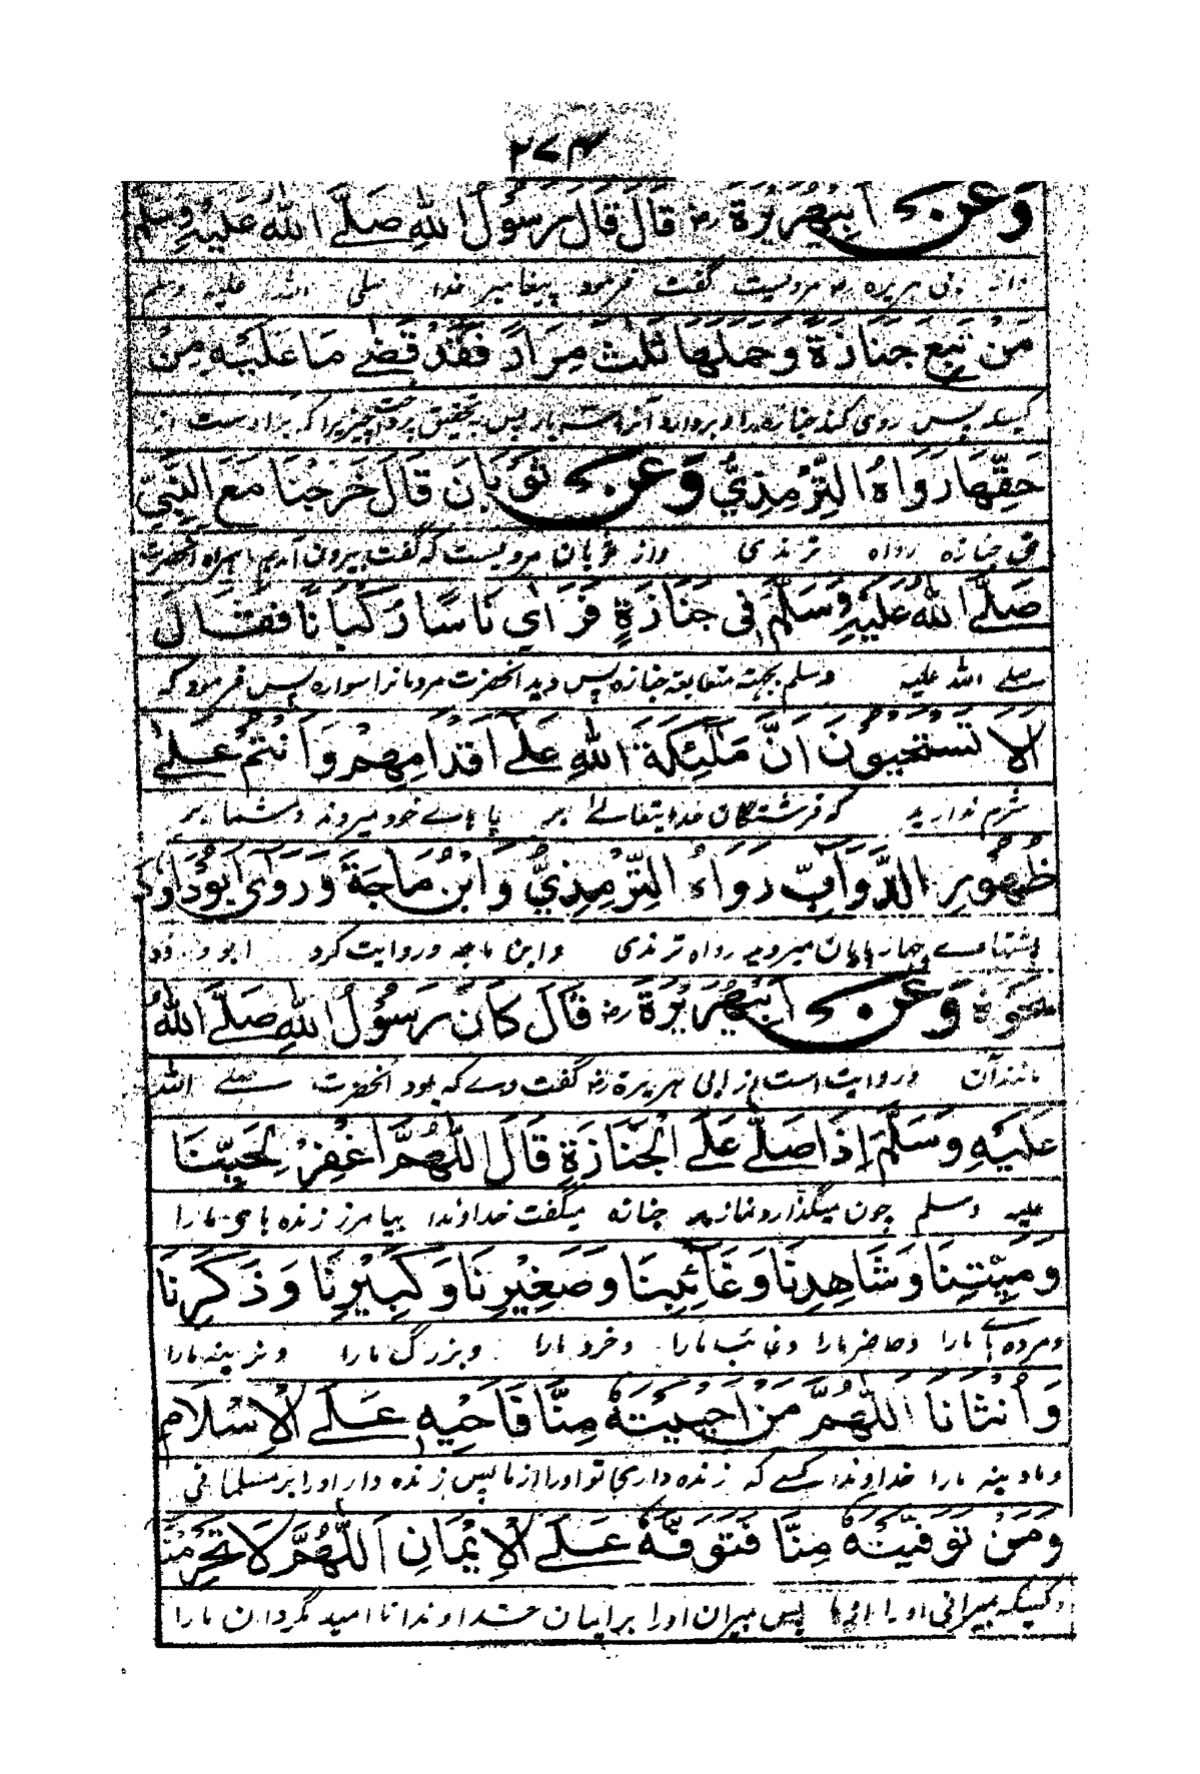 ٢٧٤
وَعَنْ اَبِيْهُرَيْرَةَ رض قَالَ قَالَ رَسُوْلُ اللّٰهِ صَلَّے اللّٰهُ عَلَيْهِ وَسَلَّمَ
ابی ہریرہ رض مرویست گفت فرمود پیغامبر خدا صلی اللہ علیہ وسلم
مَنْ تَبِعَ جَنَازَةً وَحَمَلَهَا ثَلٰثَ مِرَارٍ فَقَدْ قَضٰے مَا عَلَيْهِ مِنْ
کسیکہ پس روی کند جنازہ را و بردارد آنرا سہ بار پس بتحقیق پرداخت چیزیرا کہ براوست از
حَقِّهَا رَوَاهُ التِّرْمِذِيُّ وَعَنْ ثَوْبَانَ قَالَ خَرَجْنَا مَعَ النَّبِيِّ
حق جنازہ رواہ ترمذی واز ثوبان مرویست کہ گفت بیرون آمدیم ہمراہ آنحضرت
صَلَّے اللّٰهُ عَلَيْهِ وَسَلَّمَ فِي جَنَازَةٍ فَرَاٰي نَاسًا رُكْبَانًا فَقَالَ
صلے اللہ علیہ وسلم بجہتہ متعابقہ جنازہ پس دید آنحضرت مردمانرا سوارہ پس فرمود کہ
اَلَا تَسْتَحْيُوْنَ اَنَّ مَلٰٓئِكَةَ اللّٰهِ عَلٰٓے اَقْدَامِهِمْ وَاَنْتُمْ عَلٰے
شرم ندارید کہ فرشتگان خدایتعالے بر پا ہاے خود میروند و شما بر
ظُهُوْرِ الدَّوَآبِّ رَوَاهُ التِّرْمِذِيُّ وَابْنُ مَاجَةَ وَرَوٰى اَبُوْدَاوٗدَ
پشتہاے چہار پایان میروید رواہ ترمذی وابن ماجہ وروایت کرد ابو داود
نَحْوَهٗ وَعَنْ اَبِيْهُرَيْرَةَ رض قَالَ كَانَ رَسُوْلُ اللّٰهِ صَلَّے اللّٰهُ
مانند آن وروایت است از ابی ہریرۃ رض گفت وے کہ بود آنحضرت صلے اللہ
عَلَيْهِ وَسَلَّمَ اِذَا صَلّٰے عَلَے الْجَنَازَةِ قَالَ اَللّٰهُمَّ اغْفِرْ لِحَيِّنَا
علیہ وسلم چون میگذارد نماز بر جنازہ میگفت خداوندا بیامرز زندہ ہای مارا
وَمَيِّتِنَا وَشَاهِدِنَا وَغَآئِبِنَا وَصَغِيْرِنَا وَكَبِيْرِنَا وَذَكَرِنَا
ومردہ ہاے مارا وحاضر مارا وغائب مارا وخرد مارا وبزرگ مارا ونرینہ مارا
وَاُنْثَانَا اَللّٰهُمَّ مَنْ اَحْيَيْتَهٗ مِنَّا فَاَحْيِهٖ عَلَے الْاِسْلَامِ
ومادینہ مارا خداوندا کسے کہ زندہ داری تو اورا از ما پس زندہ دار اورا بر مسلمانی
وَمَنْ تَوَفَّيْتَهٗ مِنَّا فَتَوَفَّهٗ عَلَے الْاِيْمَانِ اَللّٰهُمَّ لَا تَحْرِمْنَا
وکسیکہ بمیرانی اورا از ما پس بمیران اورا بر ایمان خداوندا نا امید مگردان مارا